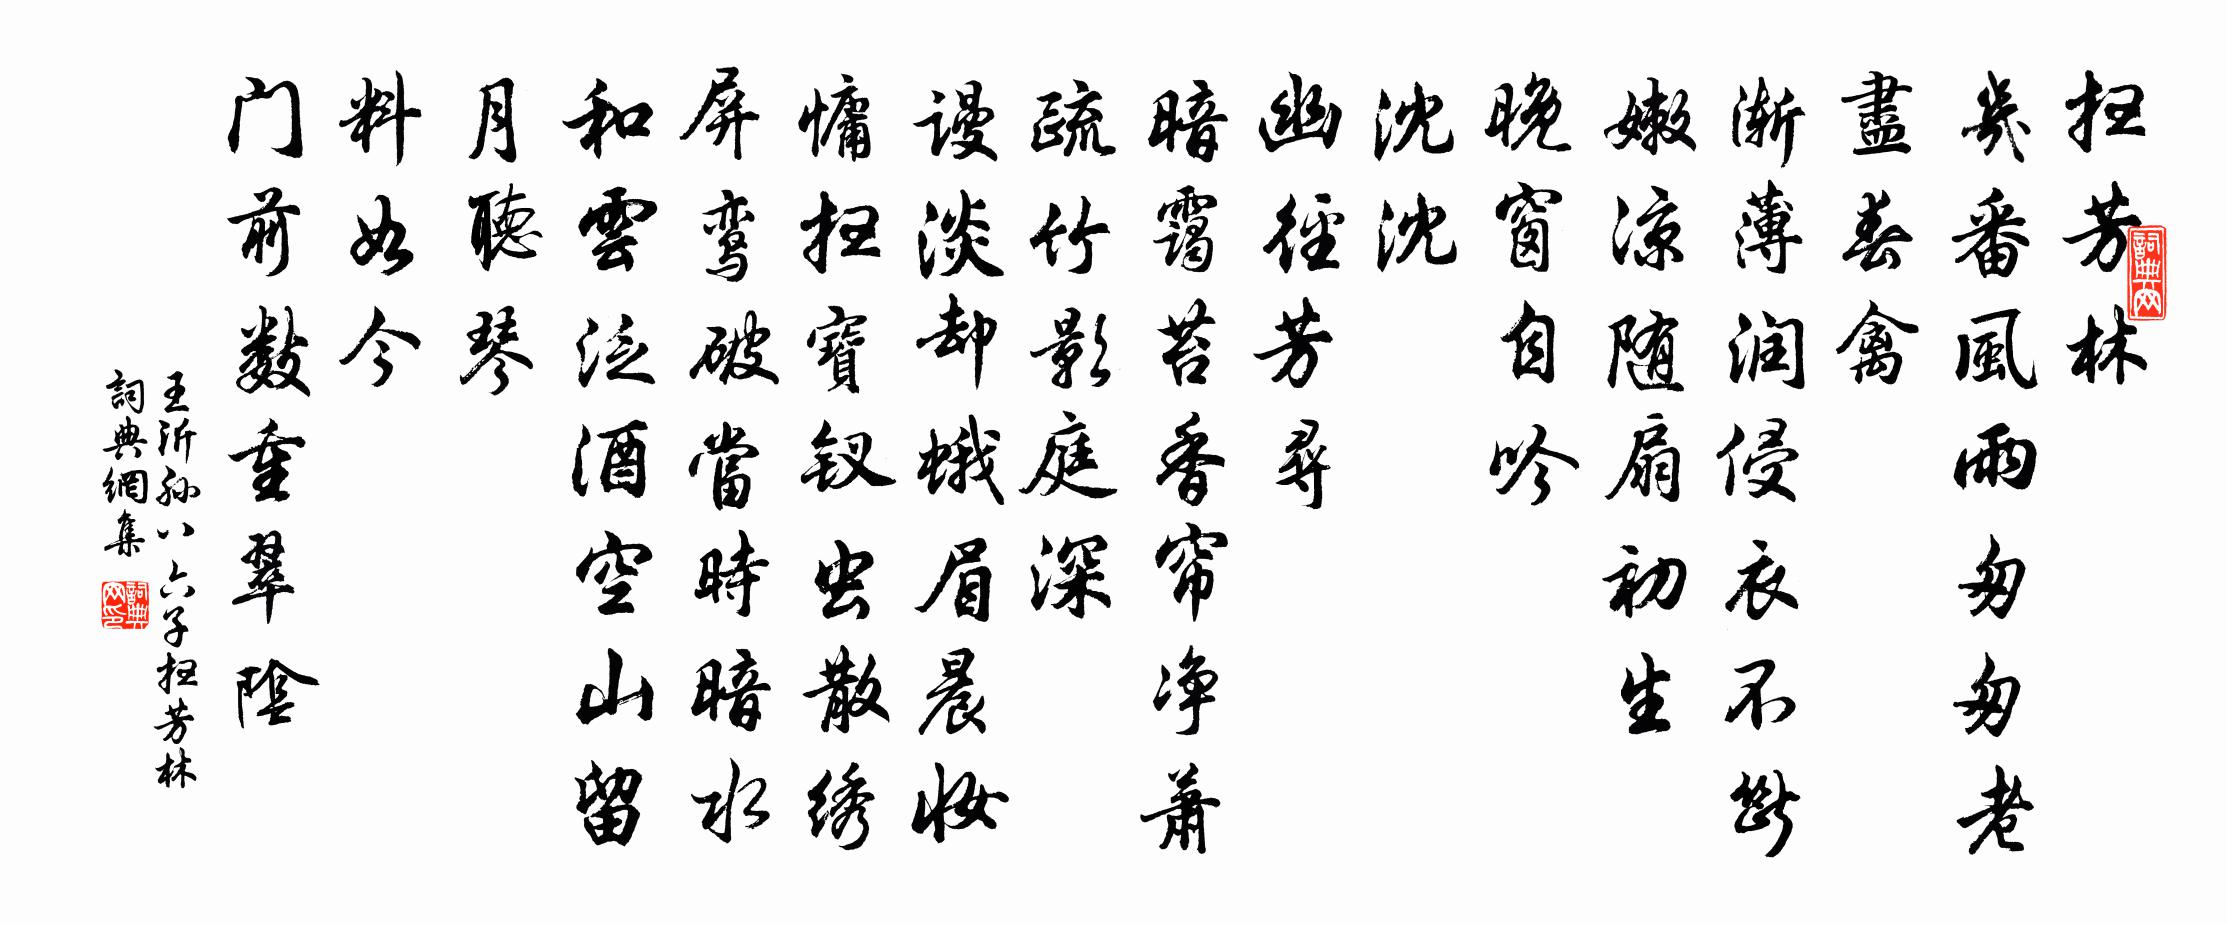 扫芳林
幾番風雨匆匆老
盡春禽
渐薄润侵衣不斷
嫩凉随扇初生
晚窗自吟
沈沈
幽径芳尋
暗靄苔香帘净萧
疏竹影庭深
谩淡却蛾眉晨妆
慵扫寶钗虫散绣
屏鸾破當時暗水
和雲泛酒空山留
月聽琴
料如今
门前数重翠陰
王沂孙八六子扫芳林
詞典網集
詞典网
詞典网印